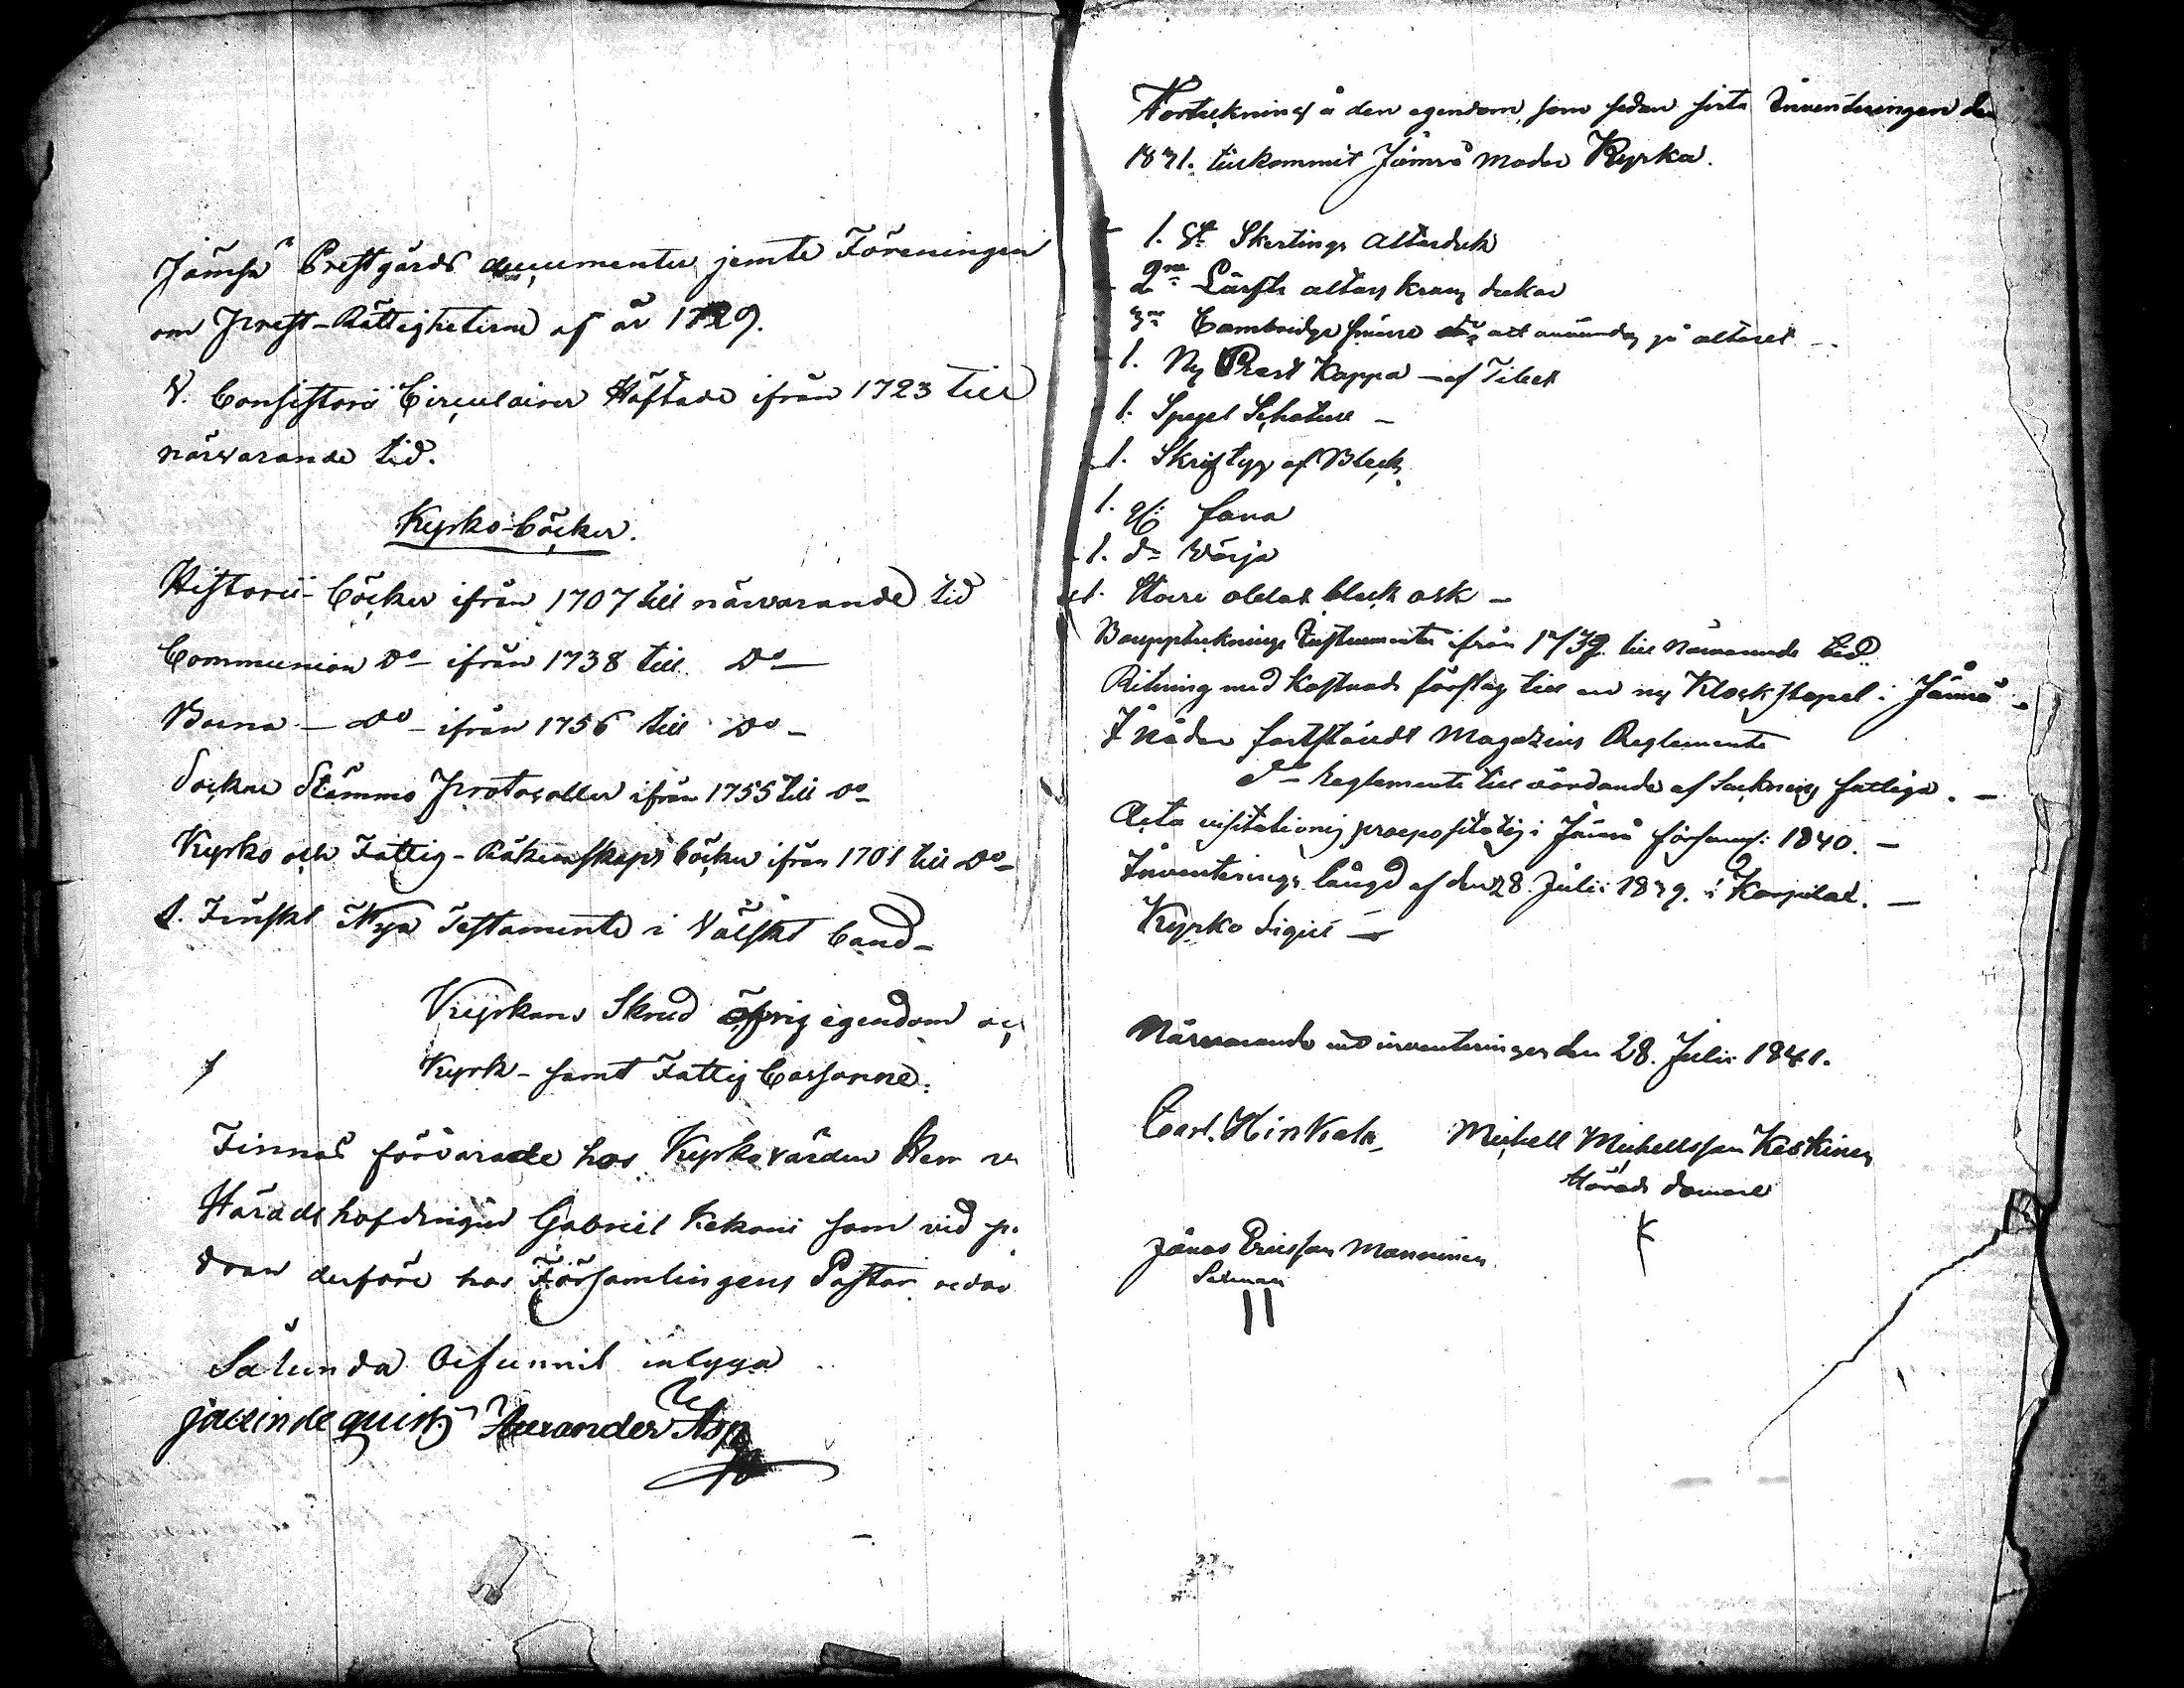 Jämsä Prestgårds documenter jemte Föreningen
om Prest-Rättigheterne af år 1729.
V. Consistorii Circulairer Häftade ifrån 1723 till
närvarande tid.
Kyrko-böcker.
Historii-böcker ifrån 1707 till närvarande tid
Communion Do ifrån 1738 till Do
Barna - Do - ifrån 1756 till Do -
Sockne Stämmo Protocoller ifrån 1755 till Do
Kyrko och Fattig-Räkenskaps böcker ifrån 1701 till Do
1. Finskt Nya Testamente i Välskt band -
Kyrkans Skrud öfrig egendom
Kyrk- samt Fattig Cassorne.
Finnas förvarade hos Kyrkovärden Herr
Häradshöfdingen Gabriel Kekoni som vid
derföre hos Församlingens Pastor
Sålunda befunnit intyga
Alexander Asp
Förtekning å den egendom, som sedan sista Inventeringen
1831. tillkommit Jämsä Moder Kyrka.
1. St. Skertings Altarduk
2ne Lärfts altars krans dukar
3ne Cambridge smärre att användas på altaret
1. Ny Prest Kappa - af Tibet
1. Spegel Schatull -
1. Skriftyg af Bleck
1. fana
1. do Värja
1. Större oblat bleck ask -
Bouppteknings Instrumenter ifrån 1739 till närvarande tid
Ritning med Kostnads förslag till en ny Klockstapel i Jämsä -
I nåder fastställdt Magazins Reglemente
do Reglemente till vårdande af Socknens fattiga. -
Acta visitationis praepositalis i Jämsä församl: 1840. -
Inventerings längd af den 28. Julii 1839. i Korpilax. -
Kyrko Sigill -
Närvarande vid inventeringen den 28. Julii 1841.
Carl. Hinkala Michell Michellsson Keskinen
Härads domare
Jonas Ericsson Manninen